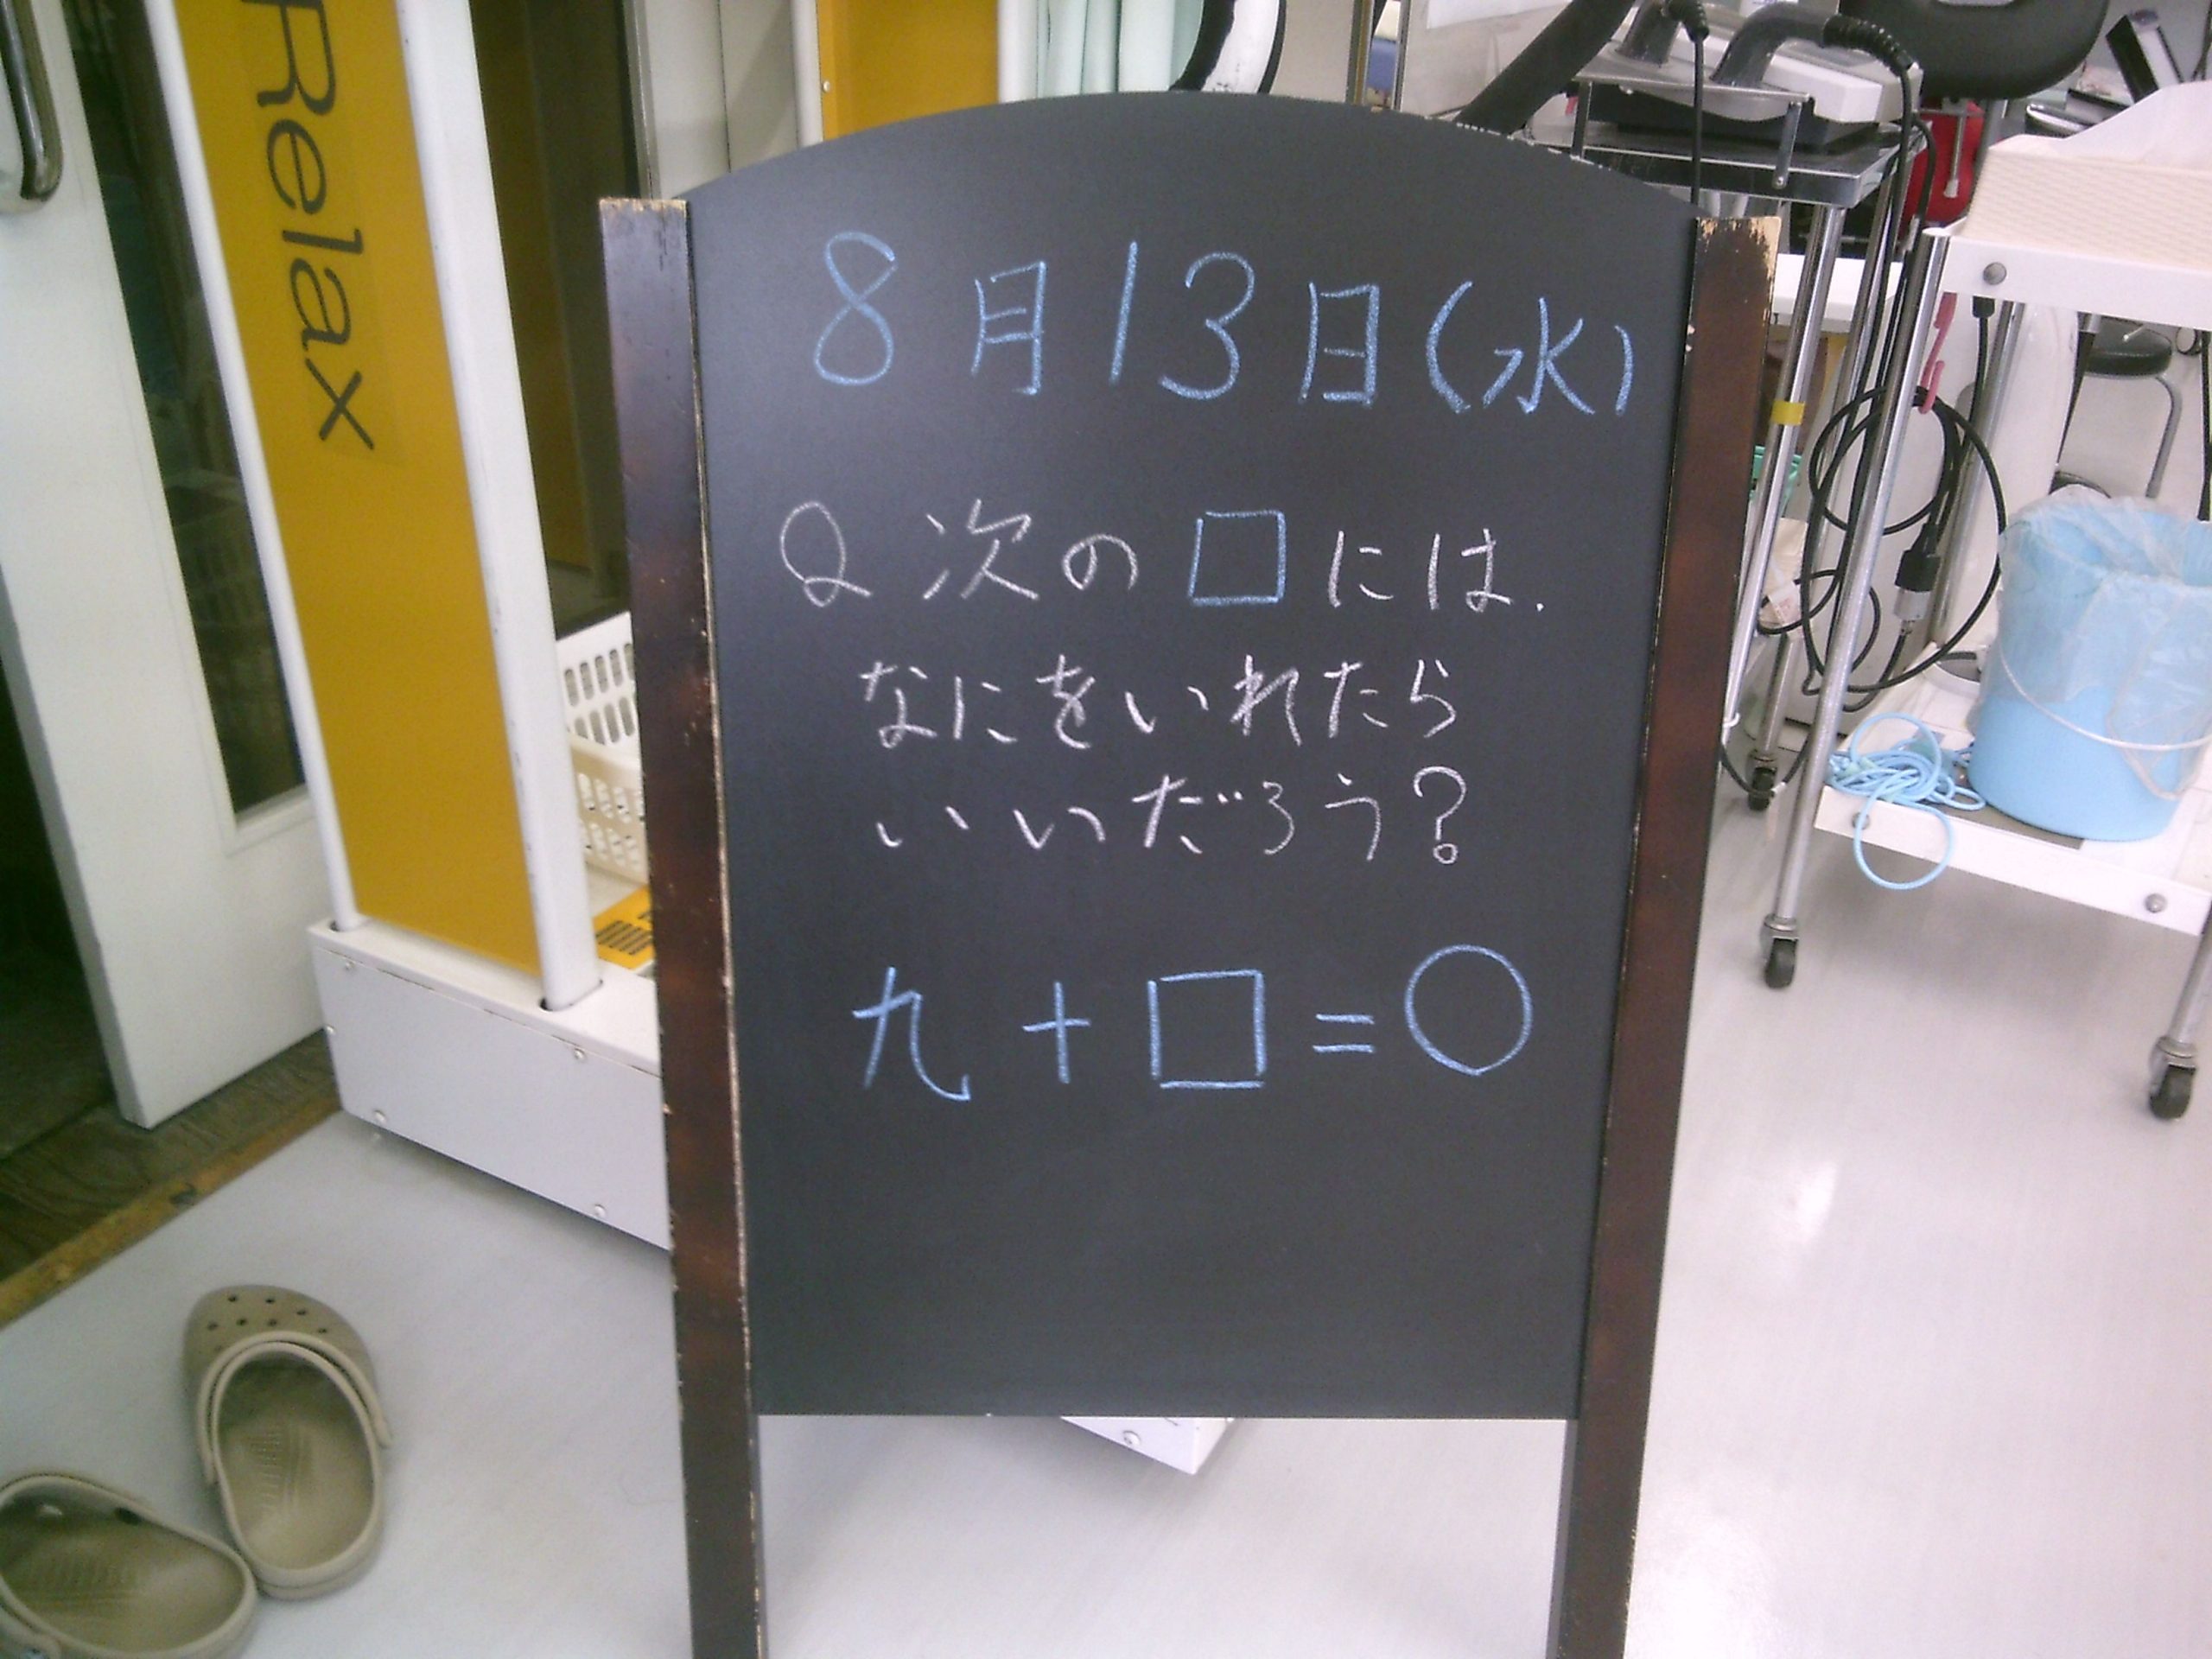 Relax
8月13日(水)
Q 次の□には.
なにをいれたら
いいだろう?
九+□=○